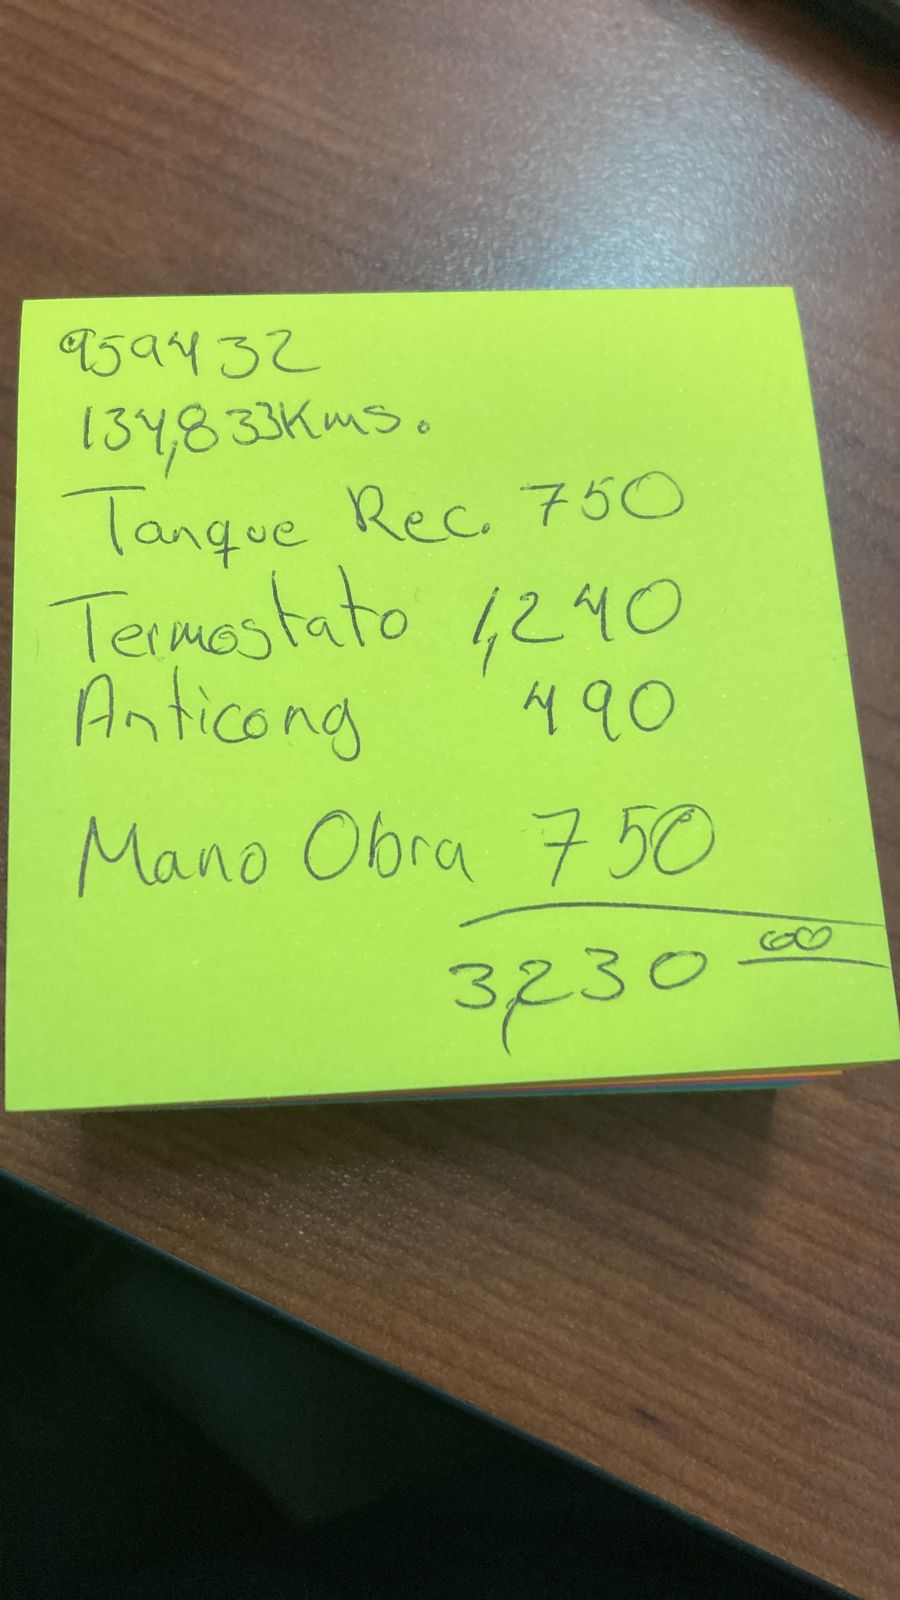 959432
134,833Kms.
Tanque Rec. 750
Termostato 1,240
Anticong 490
Mano Obra 750
3,230 00